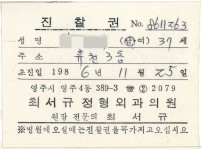 진찰권 No. 8611263
성명 (남여) 37세
주소 휴천3동
초진일 1986년 11월 25일
영주시 영주4동 389-3 ☎ ② 2079
최서규정형외과의원
원장 전문의 최서규
※병원에 오실때는 진찰권을 꼭 가지고 오십시요